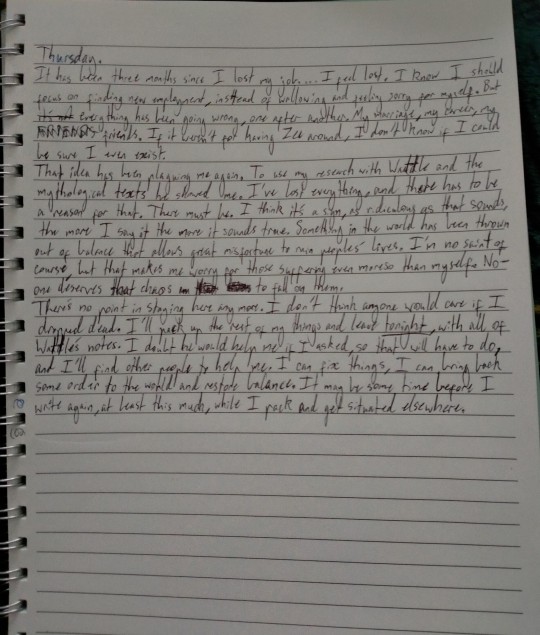 Thursday.
It has been three months since I lost my job... I feel lost. I know I should
focus on finding new employment, instead of wallowing and feeling sorry for myself. But
it's not everything has been going wrong, one after another. My marriage, my career, my
FRIENDS friends. If it wasn't for having Zee around, I don't know if I could
be sure I even exist.
That idea has been plaguing me again. To use my research with Wattle and the
mythological texts he showed me. I've lost everything, and there has to be
a reason for that. There must be. I think it's a sign, as ridiculous as that sounds,
the more I say it the more it sounds true. Something in the world has been thrown
out of balance that allows great misfortune to ruin peoples' lives. I'm no saint of
course, but that makes me worry for those suffering even moreso than myself. No-
one deserves that chaos to fall on them.
There's no point in staying here any more. I don't think anyone would care if I
dropped dead. I'll pack up the rest of my things and leave tonight, with all of
Wattle's notes. I doubt he would help me if I asked, so that will have to do,
and I'll find other people to help me. I can fix things, I can bring back
some order to the world and restore balance. It may be some time before I
write again, at least this much, while I pack and get situated elsewhere.